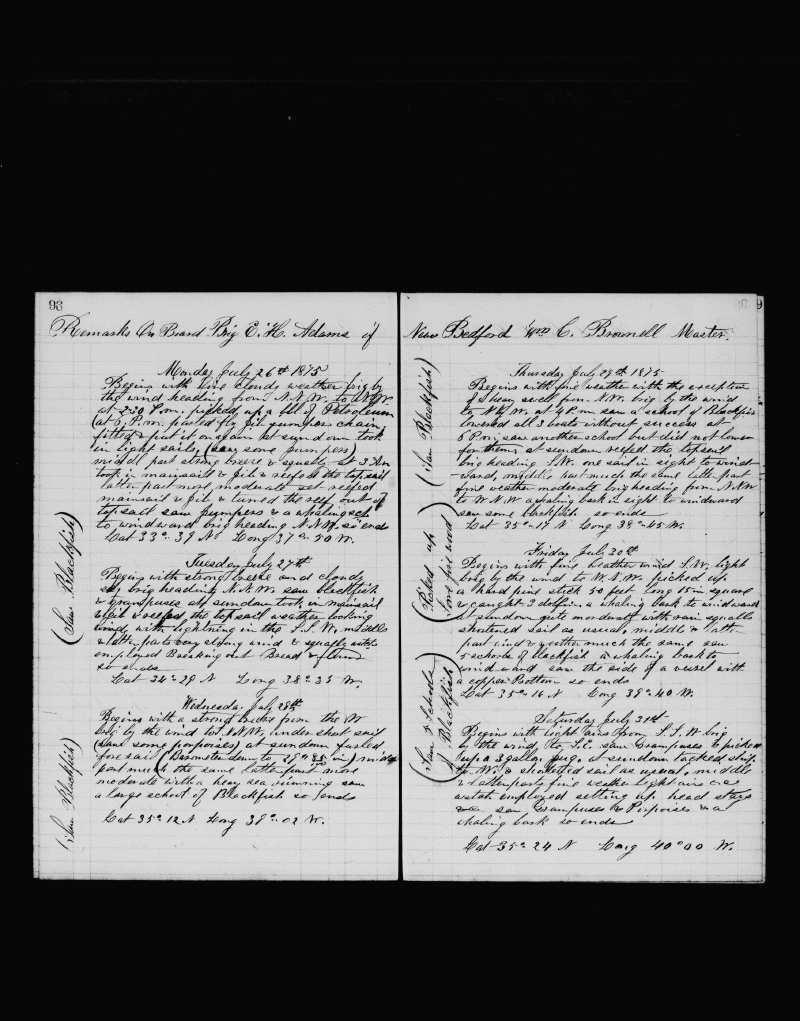 98
Remarks On Board Brig E. H. Adams of
Monday July 26th 1875
Begins with fine cloudy weather brig by
the wind heading from N.N.W. to W.N.W.
at 2.30 P.m. picked up a bbl of Petroleum
at 6 P.m. parted fly jib jumper chain
fitted & put it on again at sundown took
in light sails (saw some jumpers)
middl part strong breeze & squally at 3 Am
took in mainsail & jib & reefed the topsail
latter part more moderate set reefed
mainsail & jib & turned the reef out of
topsail saw jumpers & a whaling sch
to windward brig heading N.N.W. so ends
Lat 33°.39 N Long 37°.50 W.
(Saw Blackfish)
Tuesday July 27th
Begins with strong breeze and cloudy
sky brig heading N.N.W. saw blackfish
& grampuses at sundown took in mainsail
& jib & reefed the topsail weather looking
wind with lightning in the S.S.W. middle
& latter parts very strong wind & squally watch
employed Breaking out Bread & flour
so ends
Lat 34°.29 N Long 38°.35 W.
Wednesday July 28th
Begins with a strong breeze from the W
brig by the wind to N.N.W. under short sail
(Saw some porpoises) at sundown furled
foresail (Barometer down to in) middl
part much the same latter part more
moderate with a heavy sea running saw
a large school of Blackfish so ends
(Saw Blackfish)
Lat 35°.12 N Long 39°.02 W.
9
New Bedford Wm C. Brownell Master.
Thursday July 29th 1875
Begins with fine weather with the exception
of a heavy swell from N.W. brig by the wind
to N.W. at 4 P.m saw a school of Blackfish
lowered all 3 boats without success at
6 P.m. saw another school but did not lower
for them at sundown reefed the topsail
brig heading S.W. one sail in sight to wind-
ward, middle part much the same latter part
fine weather moderate brig heading from N.N.W
to W.N.W a whaling bark in sight to windward
saw some blackfish so ends
Lat 35°.17 N Long 38°.45 W.
(Saw Blackfish)
Friday July 30th
Begins with fine weather wind S.W. light
brig by the wind to W.N.W. picked up
a hard pine stick 50 feet long 15 in square
& caught 3 dolfin a whaling bark to windward
at sundown quite moderate with rain squalls
shortened sail as usual, middle & latter
part wind & weather much the same saw
2 schools of blackfish a whaling bark to
windward saw the side of a vessel with
a copper Bottom so ends
Lat 35°.16 N Long 39°.40 W.
(Picked up)
(Saw 2 Schools
of Blackfish)
Saturday July 31st
Begins with light airs from S.S.W brig
by the wind to S.E. saw Grampuses & picked
up a 3 gallon jug. at sundown tacked ship
to W. & shortened sail as usual, middle
& latter parts fine weather light airs &ca
watch employed setting up head stays
&ca saw Grampuses & Porpoises & a
whaling bark so ends
Lat 35°.24 N Long 40°00 W.